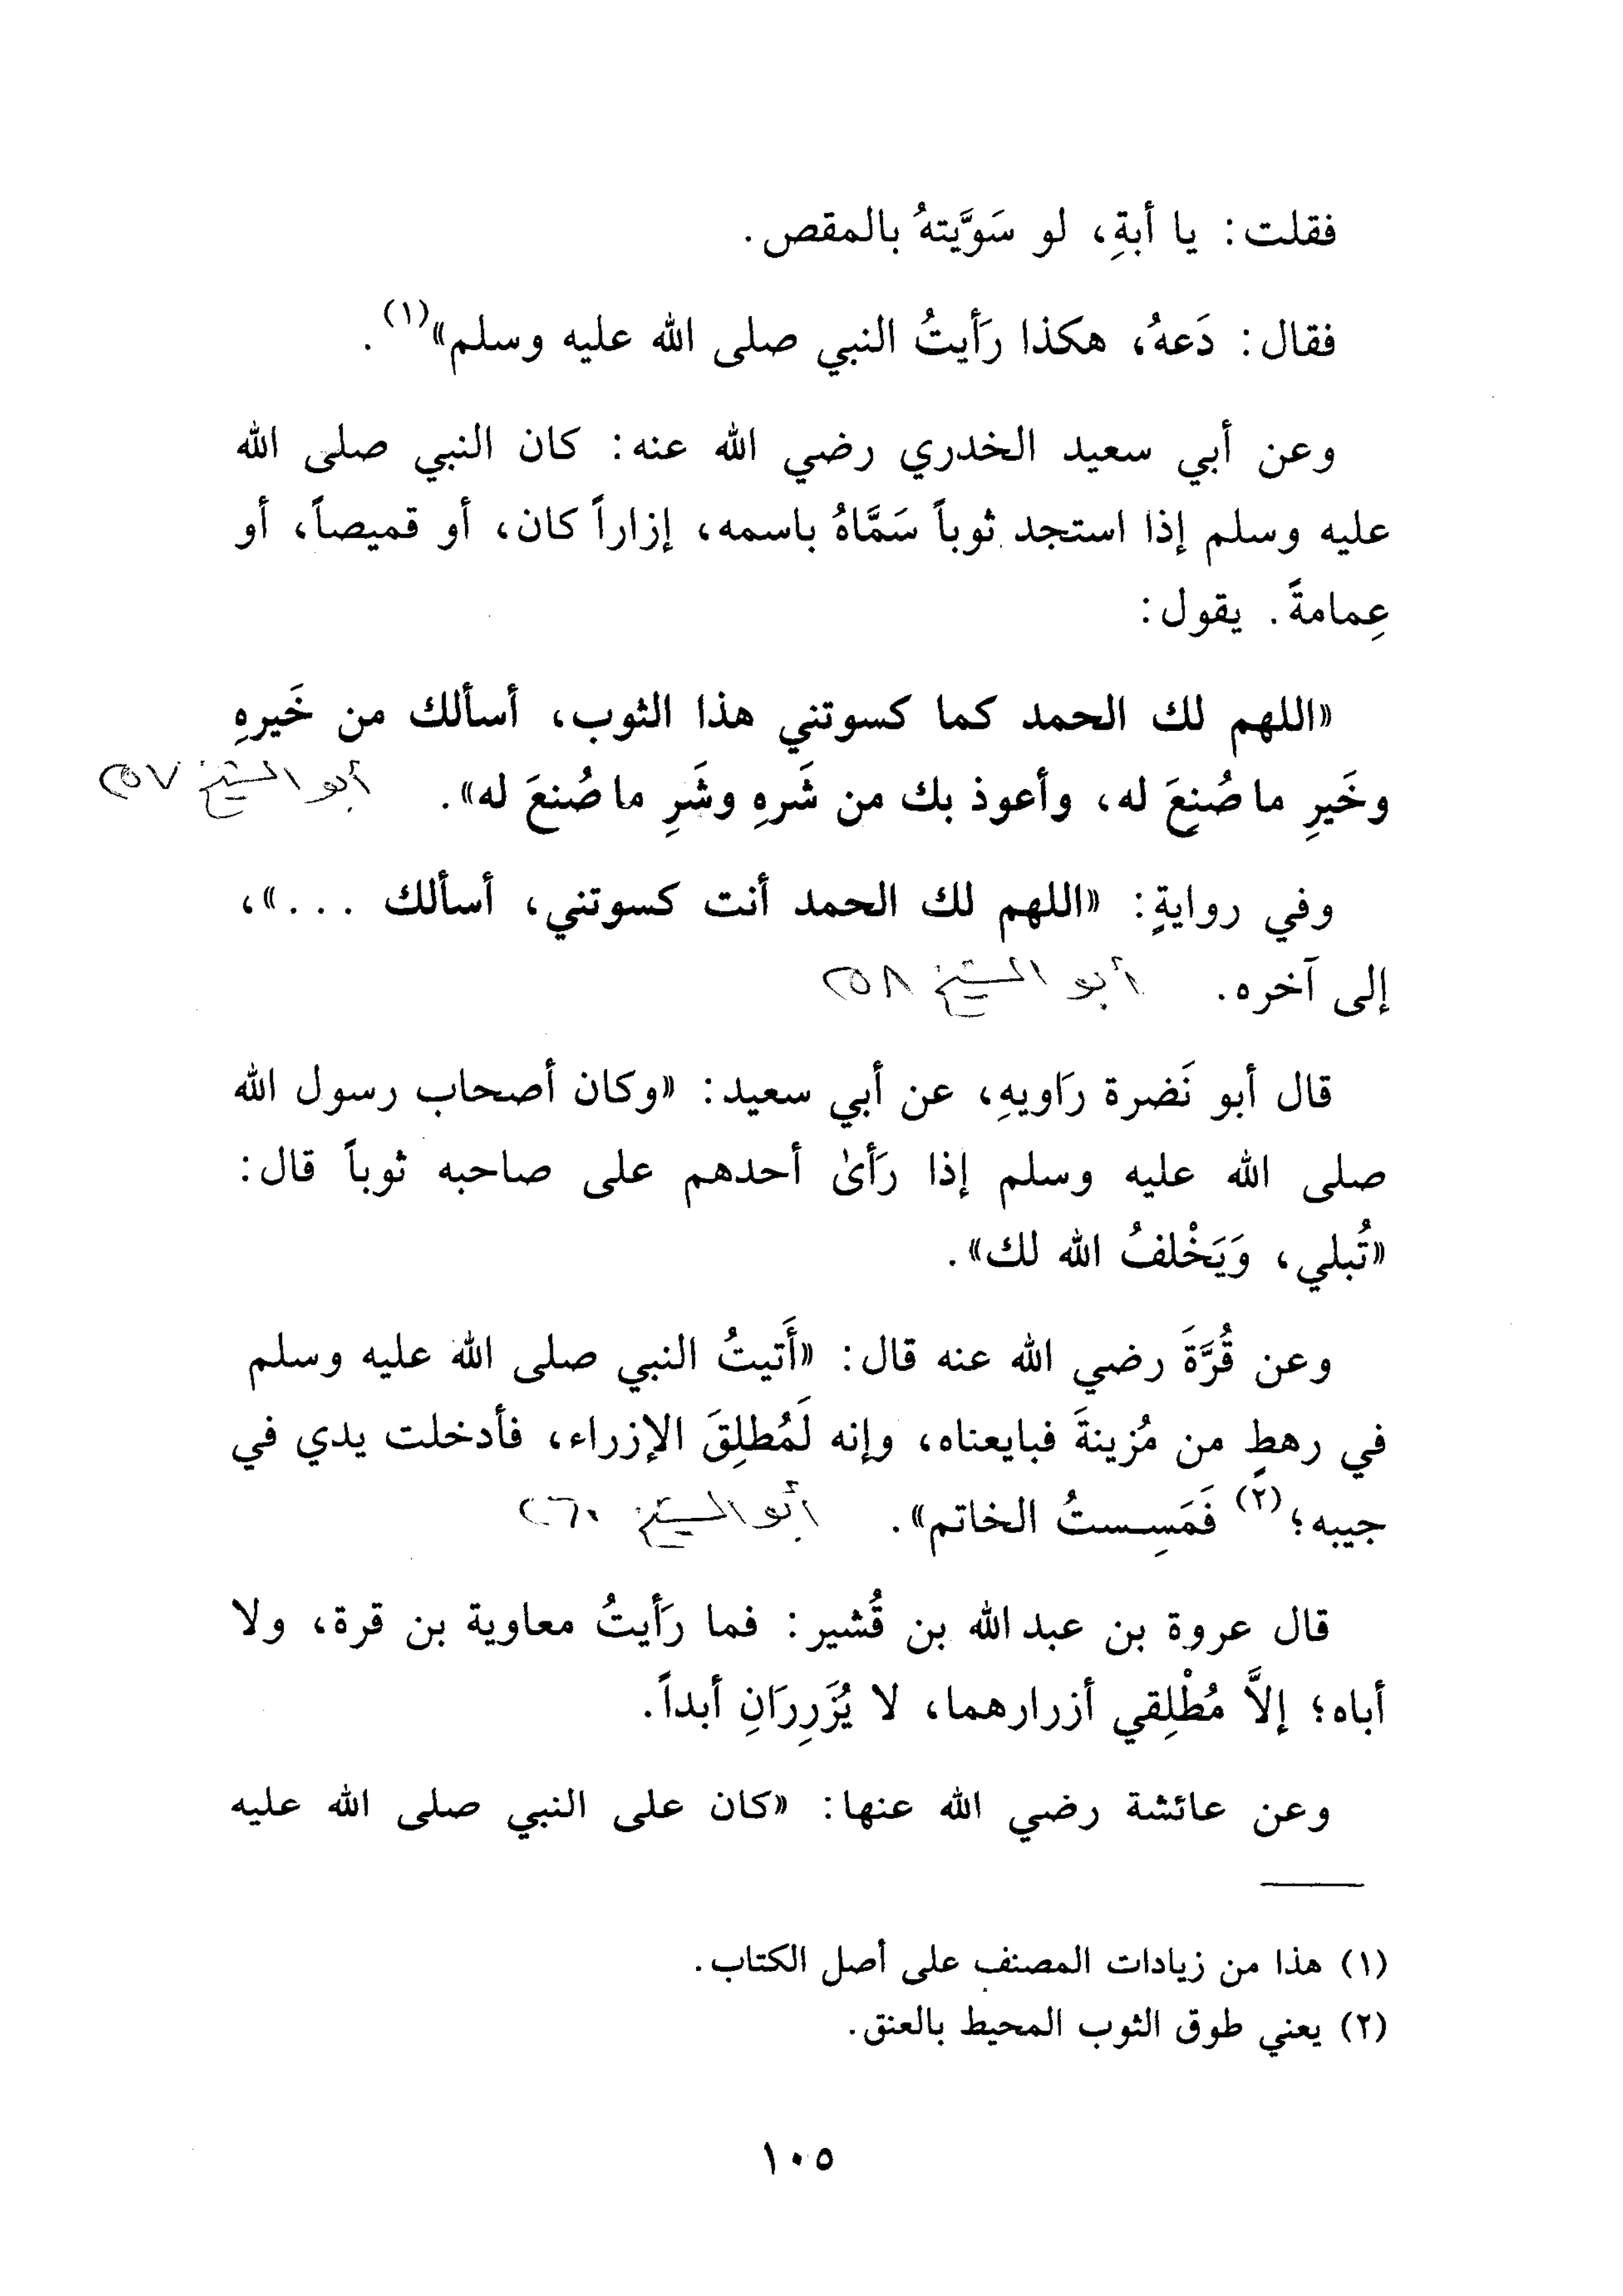 فقلت: يا أبةِ، لو سَوَّيتهُ بالمقص.
فقال: دَعهُ، هكذا رَأيتُ النبي صلى الله عليه وسلم»(١).
وعن أبي سعيد الخدري رضي الله عنه: كان النبي صلى الله
عليه وسلم إذا استجد ثوباً سَمَّاهُ باسمه، إزاراً كان، أو قميصاً، أو
عِمامةً. يقول:
«اللهم لك الحمد كما كسوتني هذا الثوب، أسألك من خَيرهِ
وخَيرِ ما صُنِعَ له، وأعوذ بك من شَرهِ وشَرِ ما صُنعَ له». أبو الشيخ ٢٥٧
وفي روايةٍ: «اللهم لك الحمد أنت كسوتني، أسألك ...»،
إلى آخره. أبو الشيخ ٢٥٨
قال أبو نَضرة رَاويهِ، عن أبي سعيد: «وكان أصحاب رسول الله
صلى الله عليه وسلم إذا رَأىٰ أحدهم على صاحبه ثوباً قال:
«تُبلي، وَيَخْلفُ الله لك».
وعن قُرَّةَ رضي الله عنه قال: «أَتيتُ النبي صلى الله عليه وسلم
في رهطٍ من مُزينةَ فبايعناه، وإنه لَمُطلِقَ الإزراء، فأدخلت يدي في
جيبه؛(٢) فَمَسِستُ الخاتم». أبو الشيخ ٢٦٠
قال عروة بن عبد الله بن قُشير: فما رَأيتُ معاوية بن قرة، ولا
أباه؛ إلاَّ مُطْلِقي أزرارهما، لا يُزَرِرَانِ أبداً.
وعن عائشة رضي الله عنها: «كان على النبي صلى الله عليه
(١) هذا من زيادات المصنف على أصل الكتاب.
(٢) يعني طوق الثوب المحيط بالعنق.
١٠٥